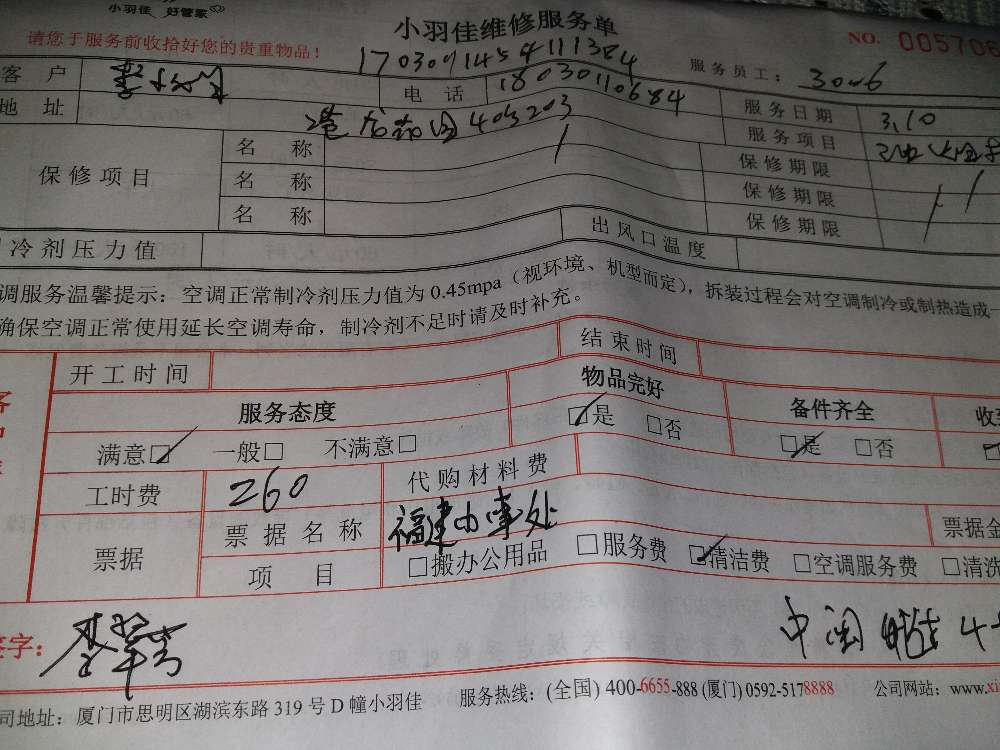 小羽佳 好管家
小羽佳维修服务单
请您于服务前收拾好您的贵重物品！
NO. 005706
1703091454111384
服务员工：3006
客 户
电 话 18030110684
服务日期 3.10
地 址
服务项目
保修项目
名 称
保修期限
名 称
保修期限
名 称
保修期限
冷剂压力值
出风口温度
调服务温馨提示：空调正常制冷剂压力值为0.45mpa（视环境、机型而定），拆装过程会对空调制冷或制热造成一
确保空调正常使用延长空调寿命，制冷剂不足时请及时补充。
开工时间
结束时间
服务态度
物品完好
备件齐全
收
满意☑ 一般□ 不满意□
☑是 □否
☑是 □否
工时费 260
代购材料费
票据
票据名称 福建办事处
票据金
项 目
□搬办公用品 □服务费 ☑清洁费 □空调服务费 □清洗
签字：
司地址：厦门市思明区湖滨东路319号D幢小羽佳
服务热线：(全国) 400-6655-888 (厦门) 0592-5178888
公司网站：www.xi